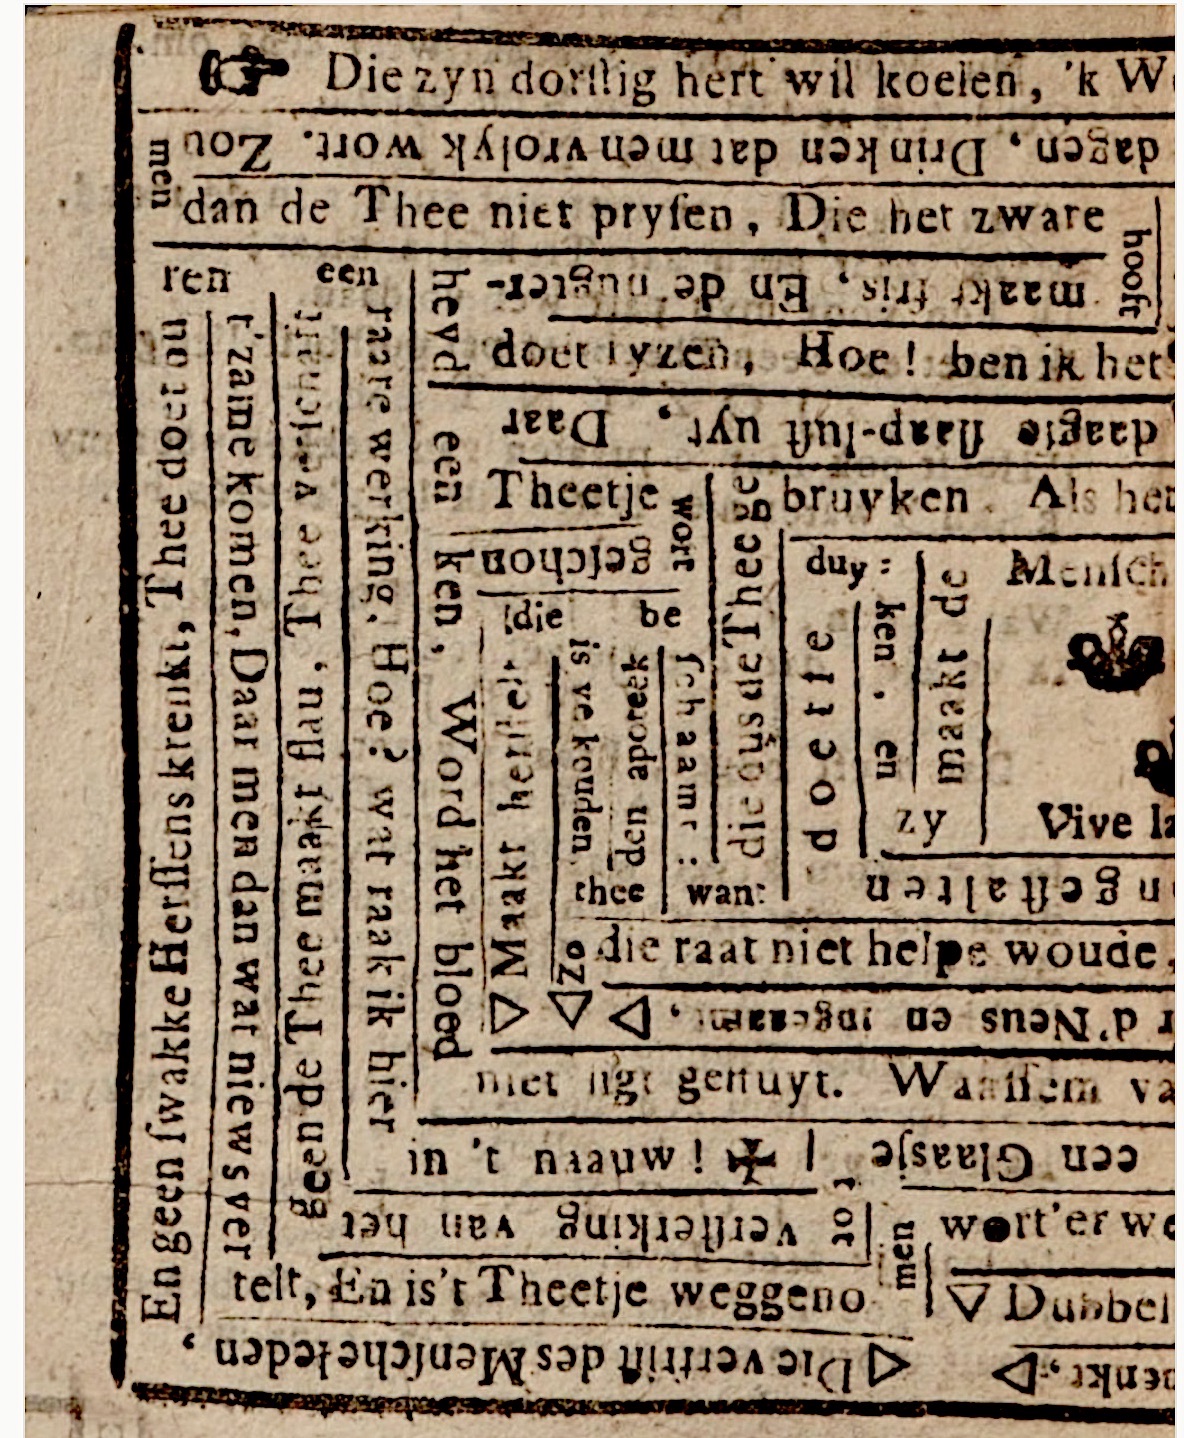 Die zyn dorstig hert wil koelen, 'k W
dagen, Drinken dat men vrolyk wort. Zou
men
dan de Thee niet prysen, Die het zware
hooft
maakt fris, En de nugter-
heyd
doet ryzen, Hoe! ben ik het
daagte slaap-lust uyt, Daar
een
Theetje
wort
geschon
ken, Word het bloed
niet ligt gestuyt. Waassem va
ren
een
raare werking. Hoe? wat raak ik hier
in 't naauw!
een Glaasje
tot
versterking van het
geen de Thee maakt flau, Thee verschaft
t'zame komen, Daar men dan wat niews ver
telt, En is't Theetje weggeno
men
wort'er we
Dubbel
Die vertrift des Mensche leden,
En geen swakke Herssens krenkt, Thee doet ou
enkt,
bruyken. Als het
die ous de Thee ge
duy:
ken, en
zy
maakt de
doet le
Mensch
Vive la
n gestalten
die be
schaamt:
want
thee
den apoteek
is ve kouden
zo
die raat niet helpe woude,
r d'Neus en ingeaamt,
Maakt herstelt